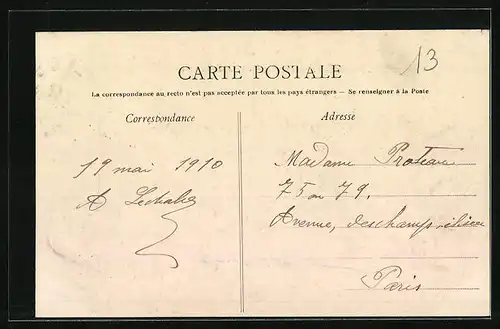 13
CARTE POSTALE
La correspondance au recto n'est pas acceptée par tous les pays étrangers — Se renseigner à la Poste
Correspondance
Adresse
19 mai 1910
A
Madame
75 ou 79.
Avenue, des champs-élisées
Paris